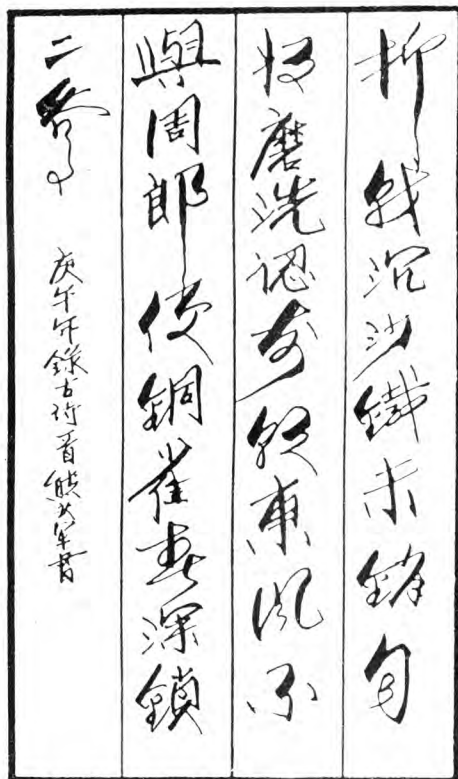 折戟沉沙鐵未銷自
將磨洗認前朝東風不
與周郎便銅雀春深鎖
二喬 庚午年錄古詩首熊軍書